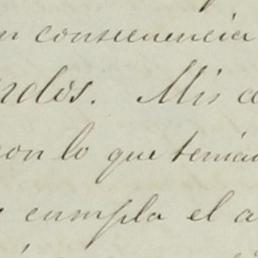 n consecuencia
ndos. Mis c
con lo que tenia
cumpla el a